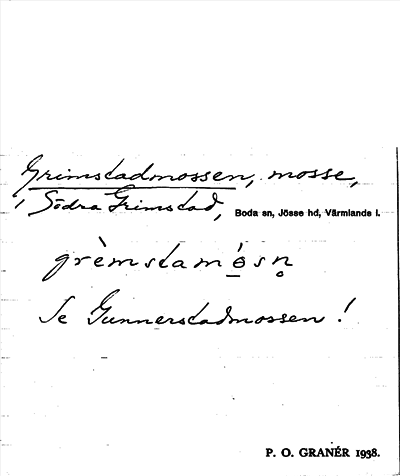 Grimstadmossen, mosse,
i Södra Grimstad, Boda sn, Jösse hd, Värmlands l.
grèmstamǿ̠sn̥
Se Gunnerstadmossen!
P. O. GRANÉR 1938.